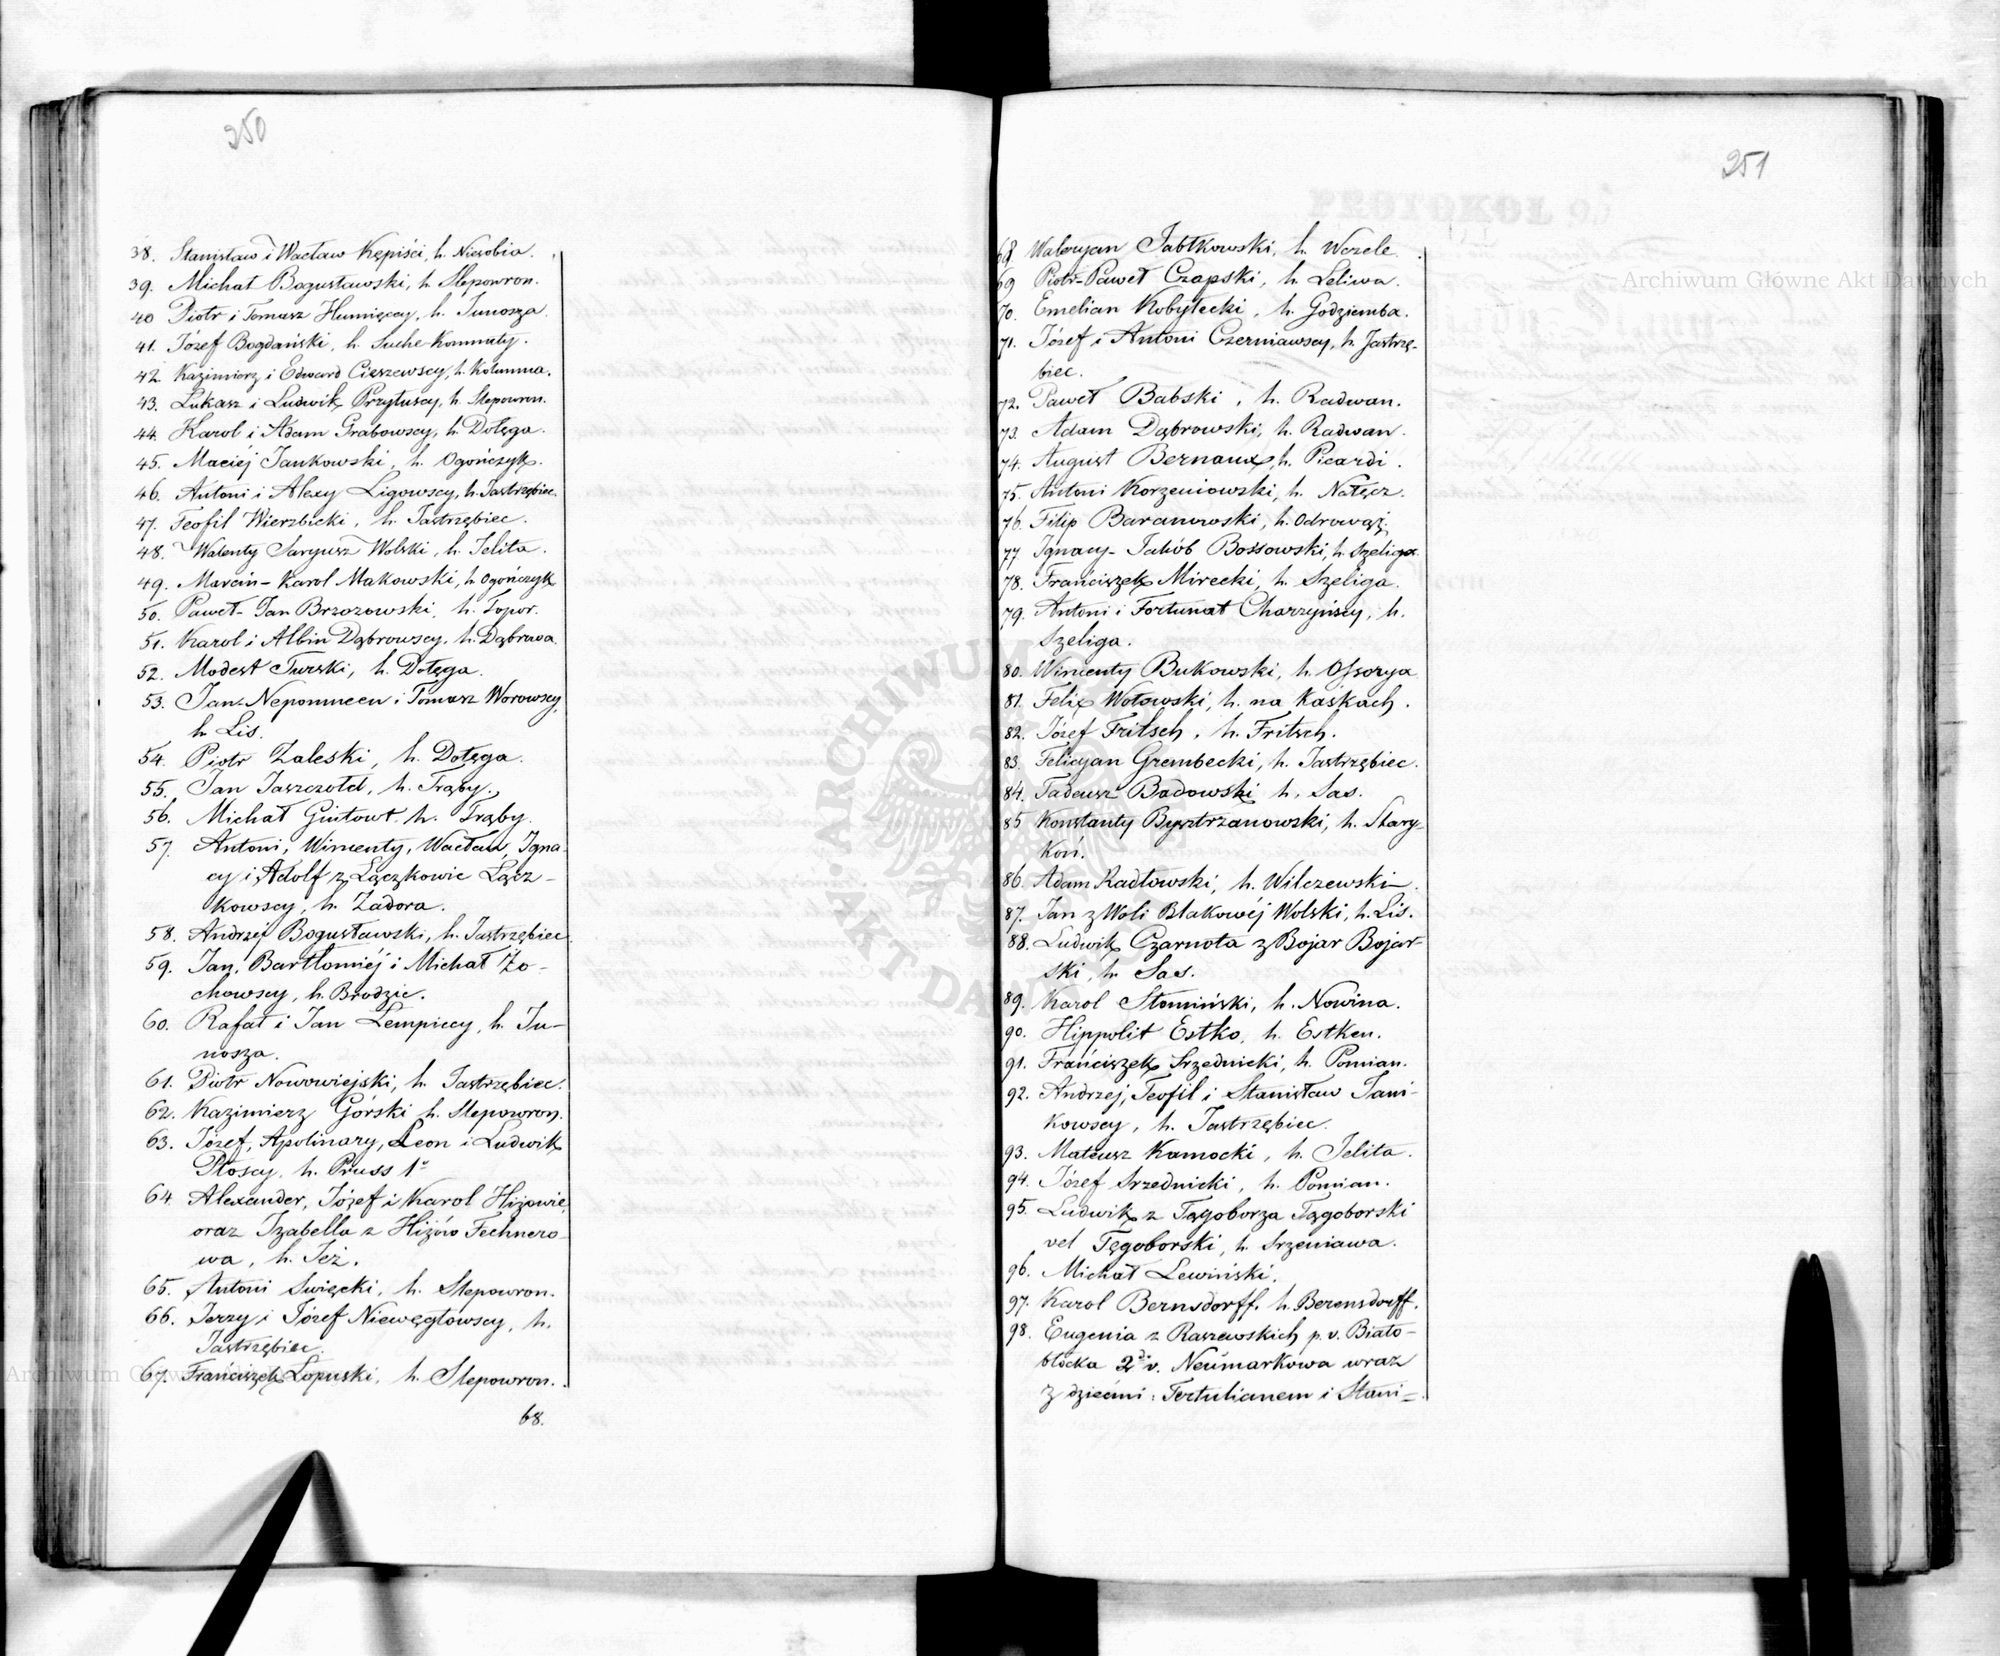 250
38. Stanisław i Wacław Kępiści, h. Niesobia.
39. Michał Bogusławski, h. Slepowron.
40 Piotr i Tomasz Humięccy, h. Junosza.
41. Józef Bogdański, h. Suche-Komnaty.
42. Kazimierz i Edward Cieszewscy, h. Kolumna.
43. Łukasz i Ludwik Przyłuscy, h. Slepowron.
44. Karol i Adam Grabowscy, h. Dołęga.
45. Maciéj Jankowski, h. Ogończyk.
46. Antoni i Alexy Ligowscy, h. Jastrzębiec.
47. Teofil Wierzbicki, h. Jastrzębiec.
48. Walenty Saryusz Wolski, h. Jelita.
49. Marcin-Karol Makowski, h. Ogończyk
50. Paweł-Jan Brzozowski, h. Topor.
51. Karol i Albin Dąbrowscy, h. Dąbrowa.
52. Modest Turski, h. Dołęga.
53. Jan-Nepomucen i Tomasz Worowscy,
h. Lis.
54. Piotr Zaleski, h. Dołęga.
55. Jan Jaszczołd, h. Trąby.
56. Michał Gintowt, h. Trąby.
57. Antoni, Wincenty, Wacław, Igna-
cy i Adolf z Łączkowic Łącz-
kowscy, h. Zadora.
58. Andrzej Bogusławski, h. Jastrzębiec
59. Jan, Bartłomiéj i Michał Żo-
chowscy, h. Brodzic.
60. Rafał i Jan Łempiccy, h. Ju-
nosza.
61. Piotr Nowowiejski, h. Jastrzębiec.
62. Kazimierz Górski h. Slepowron.
63. Józef, Apolinary, Leon i Ludwik
Płoscy, h. Pruss 1º
64. Alexander, Józef i Karol Hiżowie,
oraz Izabella z Hiżów Fechnero-
wa, h. Jeż.
65. Antoni Swięcki, h. Slepowron.
66. Jerzy i Józef Niewęgłowscy, h.
Jastrzębiec.
67. Franciszek Łopuski, h. Slepowron.
68.
251
68. Waleryan Jabłkowski, h. Wczele.
69 Piotr-Paweł Czapski, h. Leliwa.
70. Emelian Kobyłecki, h. Godziemba.
71. Józef i Antoni Czerniawscy, h. Jastrzę-
biec.
72. Paweł Babski, h. Radwan.
73. Adam Dąbrowski, h. Radwan.
74. August Bernaux, h. Picardi.
75. Antoni Korzeniowski, h. Nałęcz.
76. Filip Baranowski, h. Odrowąż.
77. Ignacy-Jakób Bossowski, h. Szeliga
78. Franciszek Mirecki, h. Szeliga.
79. Antoni i Fortunat Charzyńscy, h.
Szeliga.
80. Wincenty Bukowski, h. Ossorya
81. Felix Wołowski, h. na Kaskach.
82. Józef Fritsch, h. Fritsch.
83. Felicyan Grembecki, h. Jastrzębiec.
84. Tadeusz Badowski h. Sas.
85 Konstanty Bystrzanowski, h. Stary-
Koń.
86. Adam Radłowski, h. Wilczewski.
87. Jan z Woli Błakowéj Wolski, h. Lis.
88. Ludwik Czarnota z Bojar Bojar-
ski, h. Sas.
89. Karol Słomiński, h. Nowina.
90. Hippolit Estko, h. Estken.
91. Franciszek Srzednicki, h. Pomian.
92. Andrzej, Teofil i Stanisław Jani-
kowscy, h. Jastrzębiec.
93. Mateusz Kamocki, h. Jelita.
94. Józef Srzednicki, h. Pomian.
95. Ludwik z Tęgoborza Tęgoborski
vel Tęgoborski, h. Srzeniawa.
96. Michał Lewiński.
97. Karol Bernsdorff, h. Berensdorff.
98. Eugenia z Raszewskich p. v. Biało-
błocka 2do v. Neümarkowa wraz
z dziećmi: Tertulianem i Stani-
Archiwum Główne Akt Dawnych